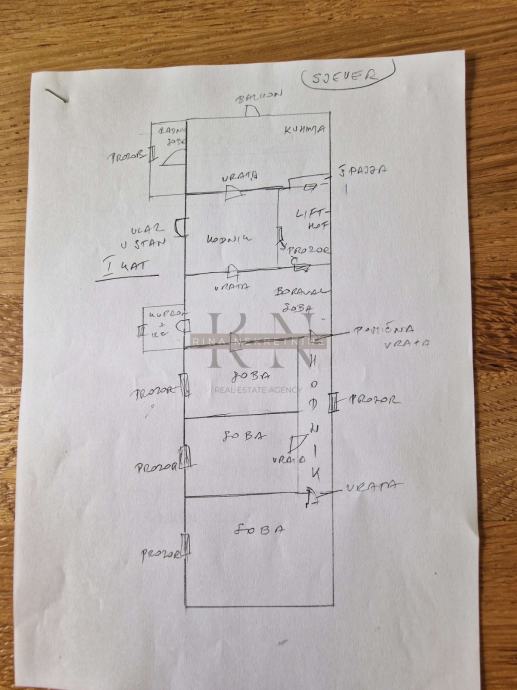 SJEVER
BALKON
RADNA
SOBA
KUHINJA
PROZOR
VRATA
ŠPAJZA
ULAZ
U STAN
I KAT
HODNIK
LIFT-
HOF
PROZOR
VRATA
BORAVAK
SOBA
KUPAON
KN
RINA NEKRETNINE
REAL ESTATE AGENCY
POMIČNA
VRATA
SOBA
PROZOR
HODNIK
PROZOR
SOBA
VRATA
PROZOR
VRATA
SOBA
PROZOR